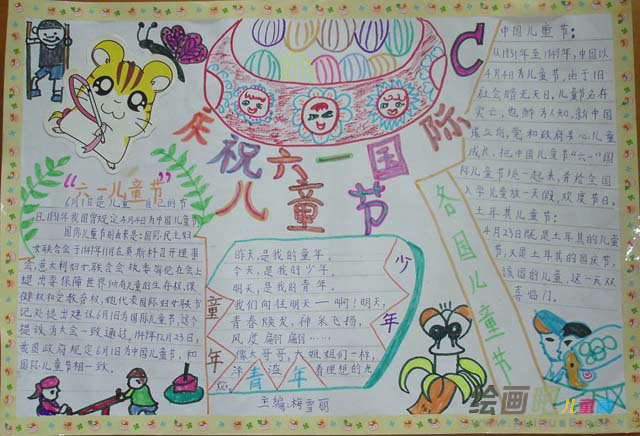 庆祝六一国际
儿童节
C
“六一儿童节”
6月1日是儿童自己的节
日,1931年我国曾规定4月4日为中国儿童节
国际儿童节的由来是:国际民主妇
女联合会于1949年11月在莫斯科召开理事
会,意大利妇女联合会执委会在会上
提出要保障世界所有儿童的生存权、保
健权和受教育权,她代表国际妇女联书
记处提出建议6月1日为国际儿童节,这个
提议为大会一致通过。1949年12月23日,
我国政府规定6月1日为中国儿童节,和
国际儿童节相一致。
昨天,是我的童年。
今天,是我的少年。
明天,是我的青年。
我们向往明天——啊!明天,
青春焕发,神采飞扬,
风度翩翩……
像大哥哥,大姐姐们一样,
洋溢着理想的光
童年
少年
青年
主编:梅雪丽
各国儿童节
中国儿童节:
从1931年至1949年,中国以
4月4日为儿童节,由于旧
社会暗无天日,儿童节名存
实亡,也鲜为人知。新中国
成立后,党和政府关心儿童
成长,把中国儿童节与“六一”国
际儿童节统一起来,并给全国
入学儿童放一天假,欢度节日。
土耳其儿童节:
4月23日既是土耳其的儿童
节,又是土耳其的国庆节,
该国的儿童,这一天双
喜临门。
绘画吧儿童画